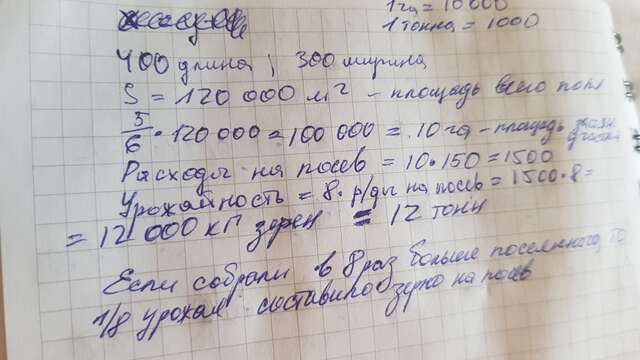 1га = 10000
1 тонна = 1000
400 длина, 300 ширина
S = 120 000 м² - площадь всего поля
5/6 · 120 000 = 100 000 = 10 га - площадь участка
Расходы на посев = 10 · 150 = 1500
Урожайность = 8 · р/ды на посев = 1500 · 8 =
= 12 000 кг зерен = 12 тонн
Если собрали в 8 раз больше посеянного, то
1/8 урожая составило зерно на посев